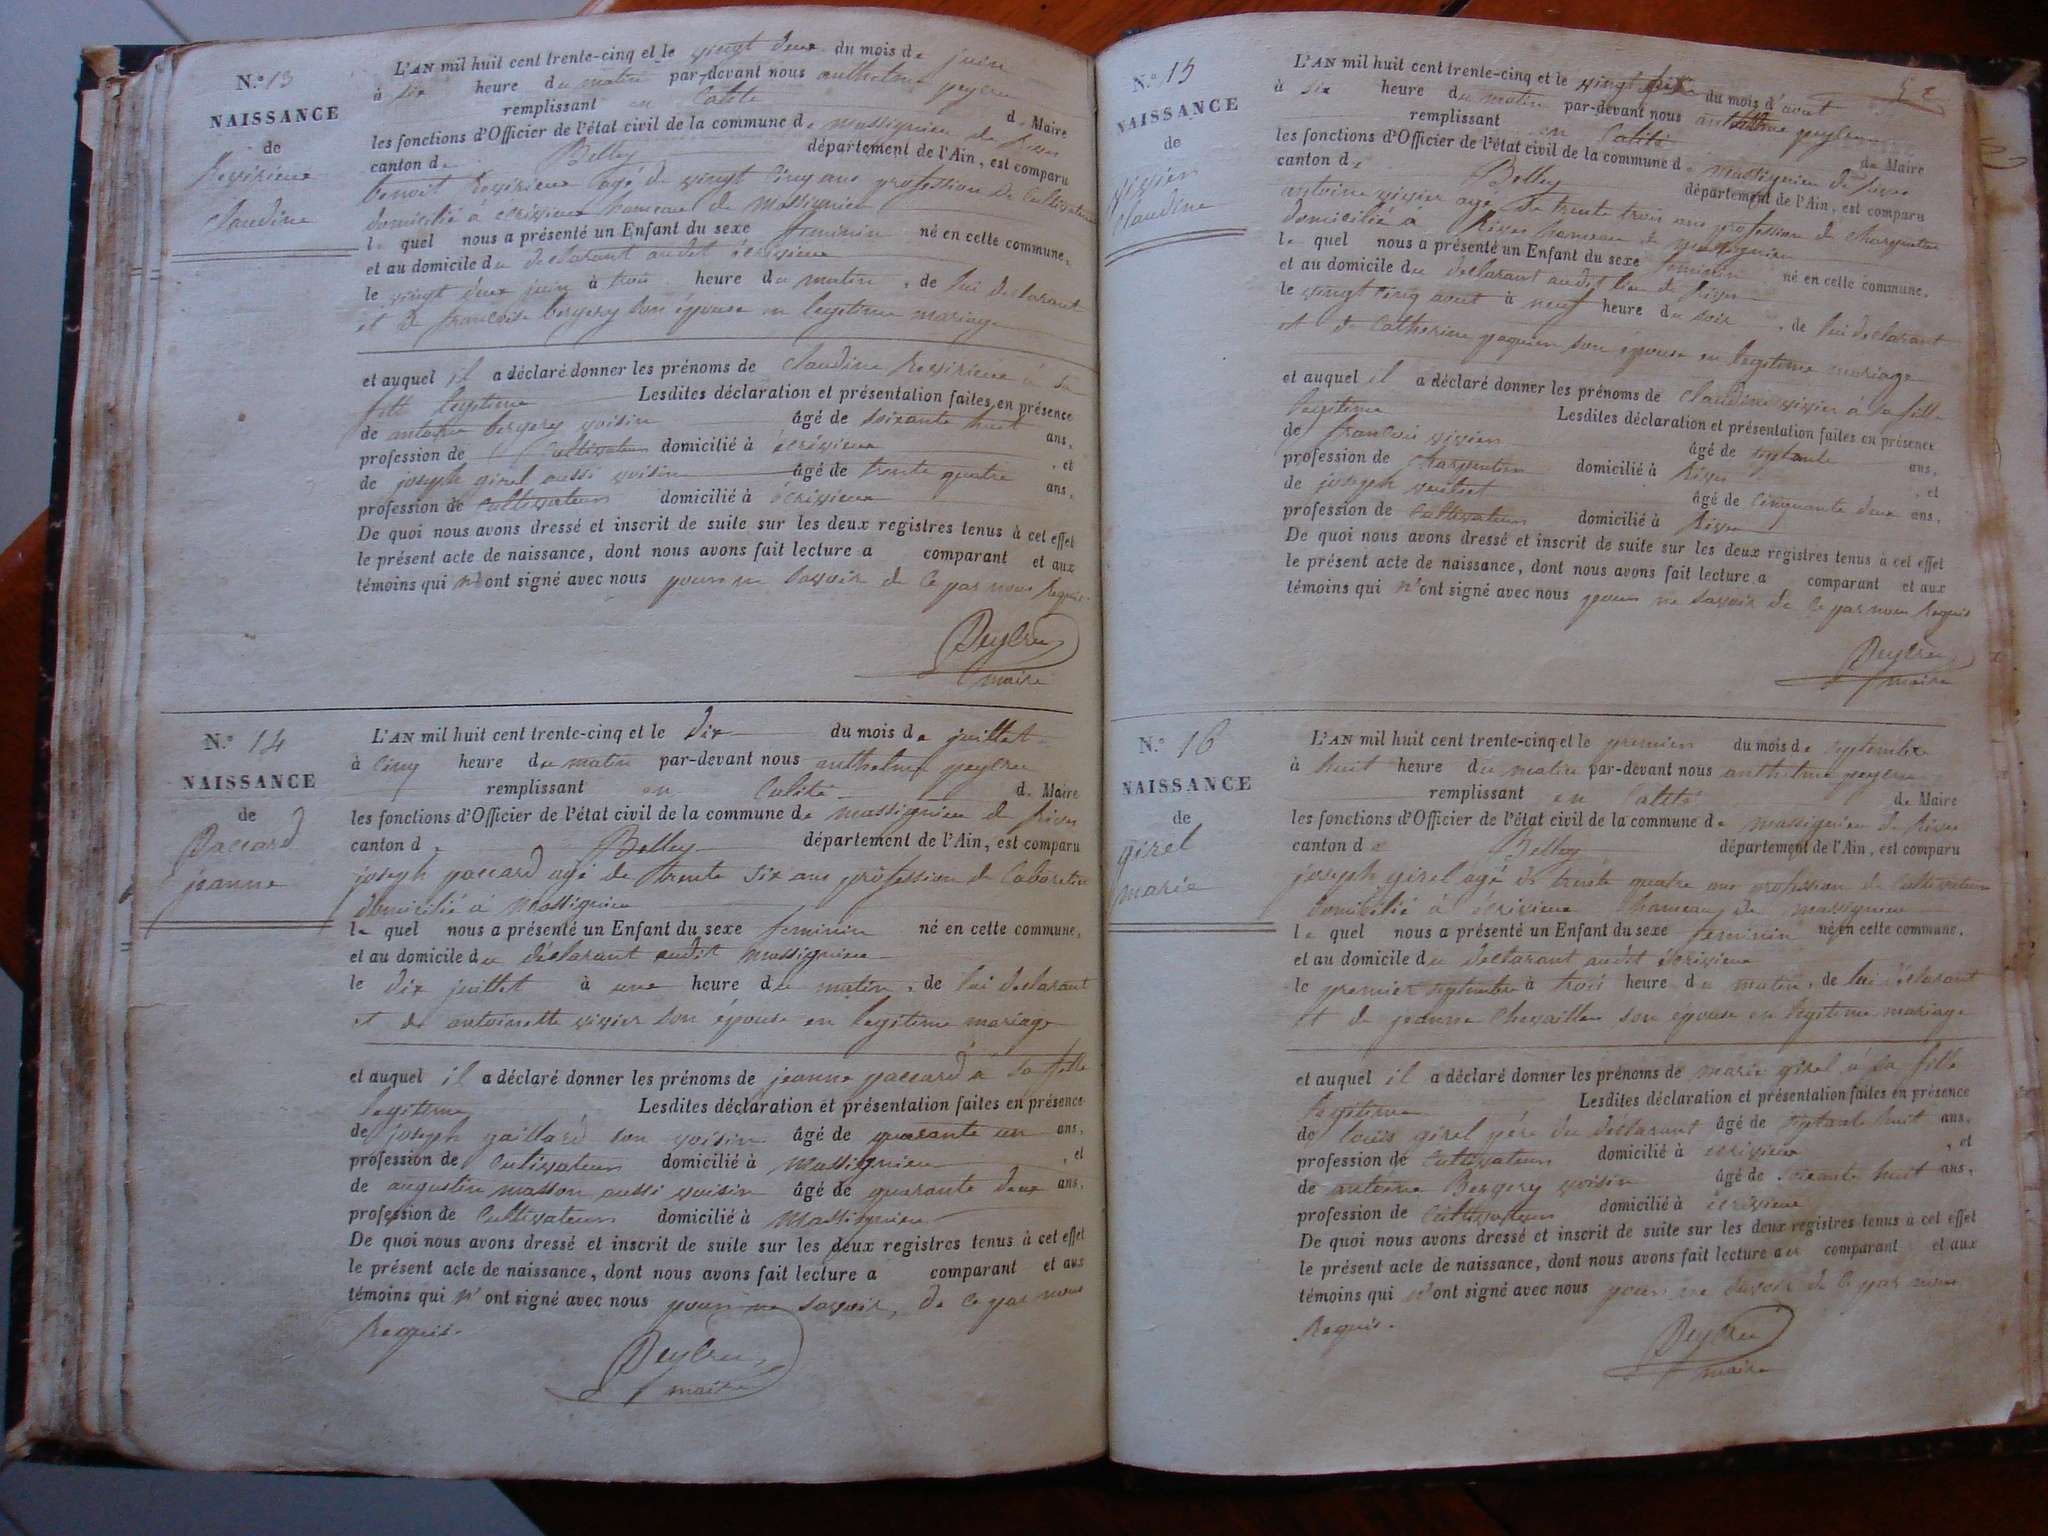 N.° 13
NAISSANCE
de
Claudine
L'AN mil huit cent trente-cinq et le vingt deux du mois de juin
à six heure du matin par-devant nous anthelme peyleu
remplissant en Calité de Maire
les fonctions d'Officier de l'état civil de la commune de massignieu de Rives
canton de Belley département de l'Ain, est comparu
benoit agé de vingt cinq ans profession de Cultivateur
domicilié à écrivieux hameau de Massignieu
le quel nous a présenté un Enfant du sexe feminin né en cette commune,
et au domicile du declarant audit écrivieux
le vingt deux juin à trois heure du matin, de lui declarant
et de francoise bergery son épouse en legitime mariage
et auquel il a déclaré donner les prénoms de Claudine à sa
fille legitime Lesdites déclaration et présentation faites en présence
de antoine bergery voisin âgé de soixante huit ans,
profession de Cultivateur domicilié à écrivieux, et
de joseph girel aussi voisin âgé de trente quatre ans,
profession de Cultivateur domicilié à écrivieux
De quoi nous avons dressé et inscrit de suite sur les deux registres tenus à cet effet
le présent acte de naissance, dont nous avons fait lecture a comparant et aux
témoins qui n'ont signé avec nous pour ne savoir de ce par nous Requis.
maire
N.° 14
NAISSANCE
de
Paccard
jeanne
L'AN mil huit cent trente-cinq et le dix du mois de juillet
à Cinq heure du matin par-devant nous anthelme peyleu
remplissant en Calité de Maire
les fonctions d'Officier de l'état civil de la commune de massignieu de Rives
canton de Belley département de l'Ain, est comparu
joseph paccard agé de trente six ans profession de Cabaretier
domicilié à Massignieu
le quel nous a présenté un Enfant du sexe feminin né en cette commune,
et au domicile du déclarant audit massignieu
le dix juillet à une heure du matin, de lui declarant
et de antoinette vivier son épouse en legitime mariage
et auquel il a déclaré donner les prénoms de jeanne paccard à sa fille
legitime Lesdites déclaration et présentation faites en présence
de joseph gaillard son voisin âgé de quarante un ans,
profession de Cultivateur domicilié à Massignieu, et
de augustin masson aussi voisin âgé de quarante deux ans,
profession de Cultivateur domicilié à Massignieu
De quoi nous avons dressé et inscrit de suite sur les deux registres tenus à cet effet
le présent acte de naissance, dont nous avons fait lecture a comparant et aux
témoins qui n'ont signé avec nous pour ne savoir, de ce par nous
Requis.
maire
N.° 15
NAISSANCE
de
vivier
Claudine
L'AN mil huit cent trente-cinq et le vingt six du mois d'aout
à six heure du matin par-devant nous anthelme peyleu
remplissant en Calité de Maire
les fonctions d'Officier de l'état civil de la commune de massignieu de Rives
canton de Belley département de l'Ain, est comparu
antoine vivier agé de trente trois ans profession de Charpentier
domicilié à Rives hameau de massignieu
le quel nous a présenté un Enfant du sexe feminin né en cette commune,
et au domicile du declarant audit lieu de Rives
le vingt cinq aout à neuf heure du soir, de lui declarant
et de Catherine son épouse en legitime mariage
et auquel il a déclaré donner les prénoms de Claudine vivier à sa fille
legitime Lesdites déclaration et présentation faites en présence
de francois vivier âgé de septante ans,
profession de Charpentier domicilié à Rives, et
de joseph âgé de Cinquante deux ans,
profession de Cultivateur domicilié à Rives
De quoi nous avons dressé et inscrit de suite sur les deux registres tenus à cet effet
le présent acte de naissance, dont nous avons fait lecture a comparant et aux
témoins qui n'ont signé avec nous pour ne savoir de ce par nous Requis
maire
N.° 16
NAISSANCE
de
girel
marie
L'AN mil huit cent trente-cinq et le premier du mois de septembre
à huit heure du matin par-devant nous anthelme peyleu
remplissant en Calité de Maire
les fonctions d'Officier de l'état civil de la commune de massignieu de Rives
canton de Belley département de l'Ain, est comparu
joseph girel agé de trente quatre ans profession de Cultivateur
domicilié à écrivieux hameau de massignieu
le quel nous a présenté un Enfant du sexe feminin né en cette commune,
et au domicile du declarant audit écrivieux
le premier septembre à trois heure du matin, de lui declarant
et de jeanne Chevaillier son épouse en legitime mariage
et auquel il a déclaré donner les prénoms de marie girel à sa fille
legitime Lesdites déclaration et présentation faites en présence
de louis girel père du declarant âgé de septante huit ans,
profession de Cultivateur domicilié à écrivieux, et
de antoine Bergery voisin âgé de soixante huit ans,
profession de Cultivateur domicilié à écrivieux
De quoi nous avons dressé et inscrit de suite sur les deux registres tenus à cet effet
le présent acte de naissance, dont nous avons fait lecture au comparant et aux
témoins qui n'ont signé avec nous pour ne savoir de ce par nous
Requis.
maire